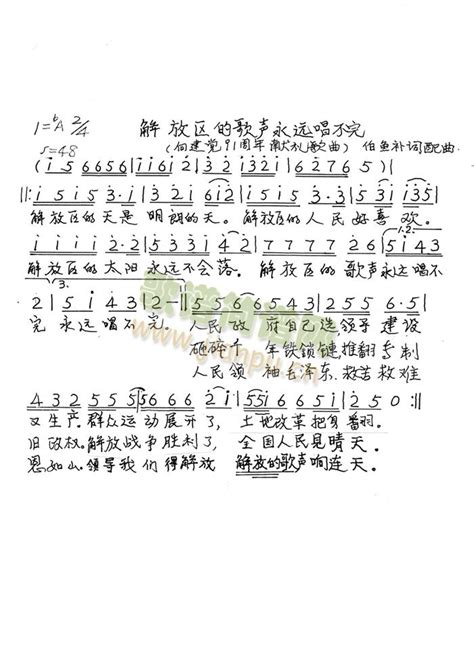 解放区的歌声永远唱不完
1=♭A 2/4
♩=48
(向建党91周年献礼歌曲) 伯鱼补词配曲
(i 5 6656|i i6i2|3 2 i32i|6 2 7 6 5)|
‖: i 5 i 5 3·i|3 2 i 6i2|i 5 i 5 3·5|5 3i i35|
解放区的天是 明朗的天。解放区的人民好喜 欢。
i i i i 2·2|5 3 3 i 42|7 7 7 7 2 6|5 i 4 3
解放区的太阳永远不会落。解放区的歌声永远唱不
2|5 i 4 3|2-‖5 5 6 6543|2 5 5 6·5|
完 永远唱不 完。 人民政 府自己选,领导 建设
砸碎千 年铁锁链,推翻专制
人民领 袖毛泽东,救苦救难
4 3 2 5 5 5 5|5666 2i|55i 6 6 5 i|2 5 0:‖
又生产。群众运动展开了, 土地改革把身翻。
旧政权。解放战争胜利了, 全国人民见晴天。
恩如山。领导我们得解放 解放的歌声响连天。